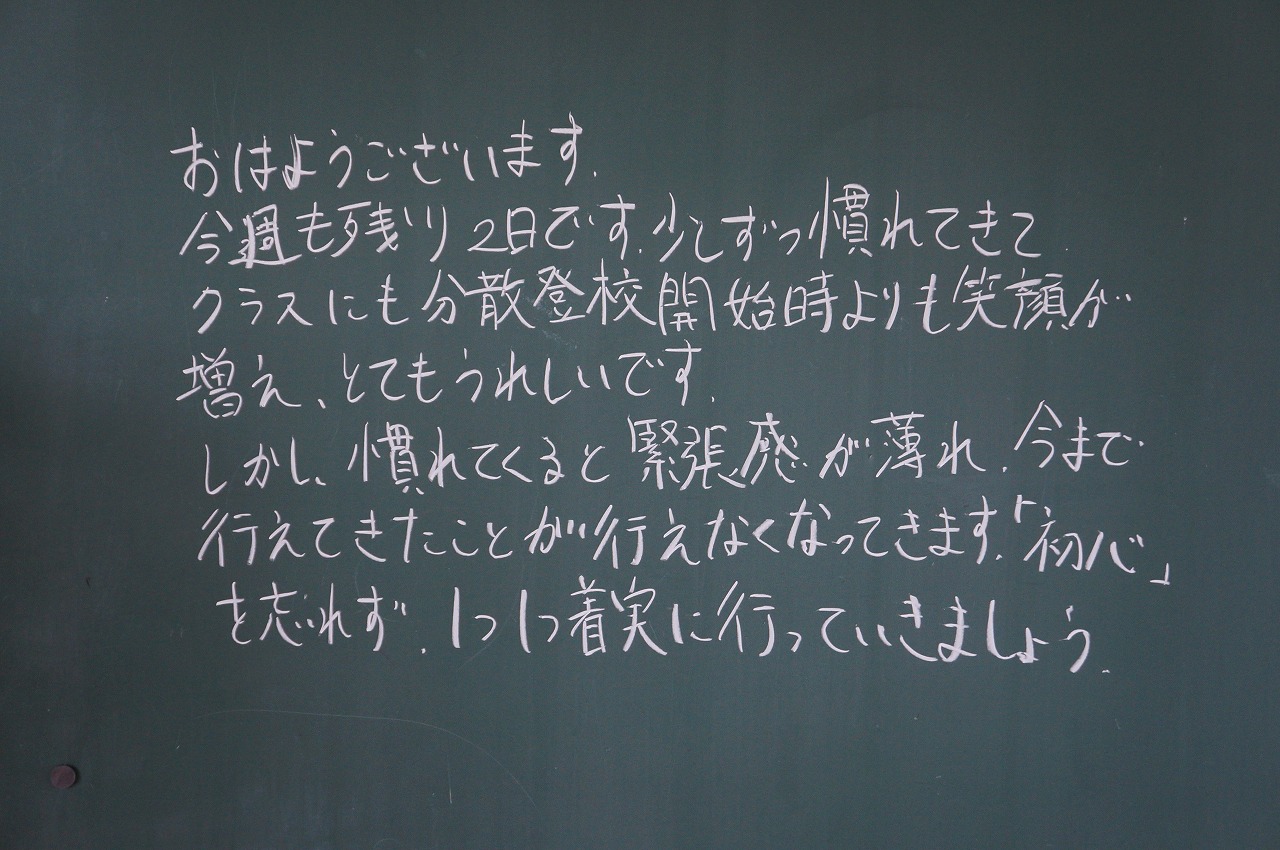 おはようございます.
今週も残り2日です.少しずつ慣れてきて
クラスにも分散登校開始時よりも笑顔が
増え、とてもうれしいです.
しかし、慣れてくると緊張感が薄れ.今まで
行えてきたことが行えなくなってきます.「初心」
を忘れず.1つ1つ着実に行っていきましょう.